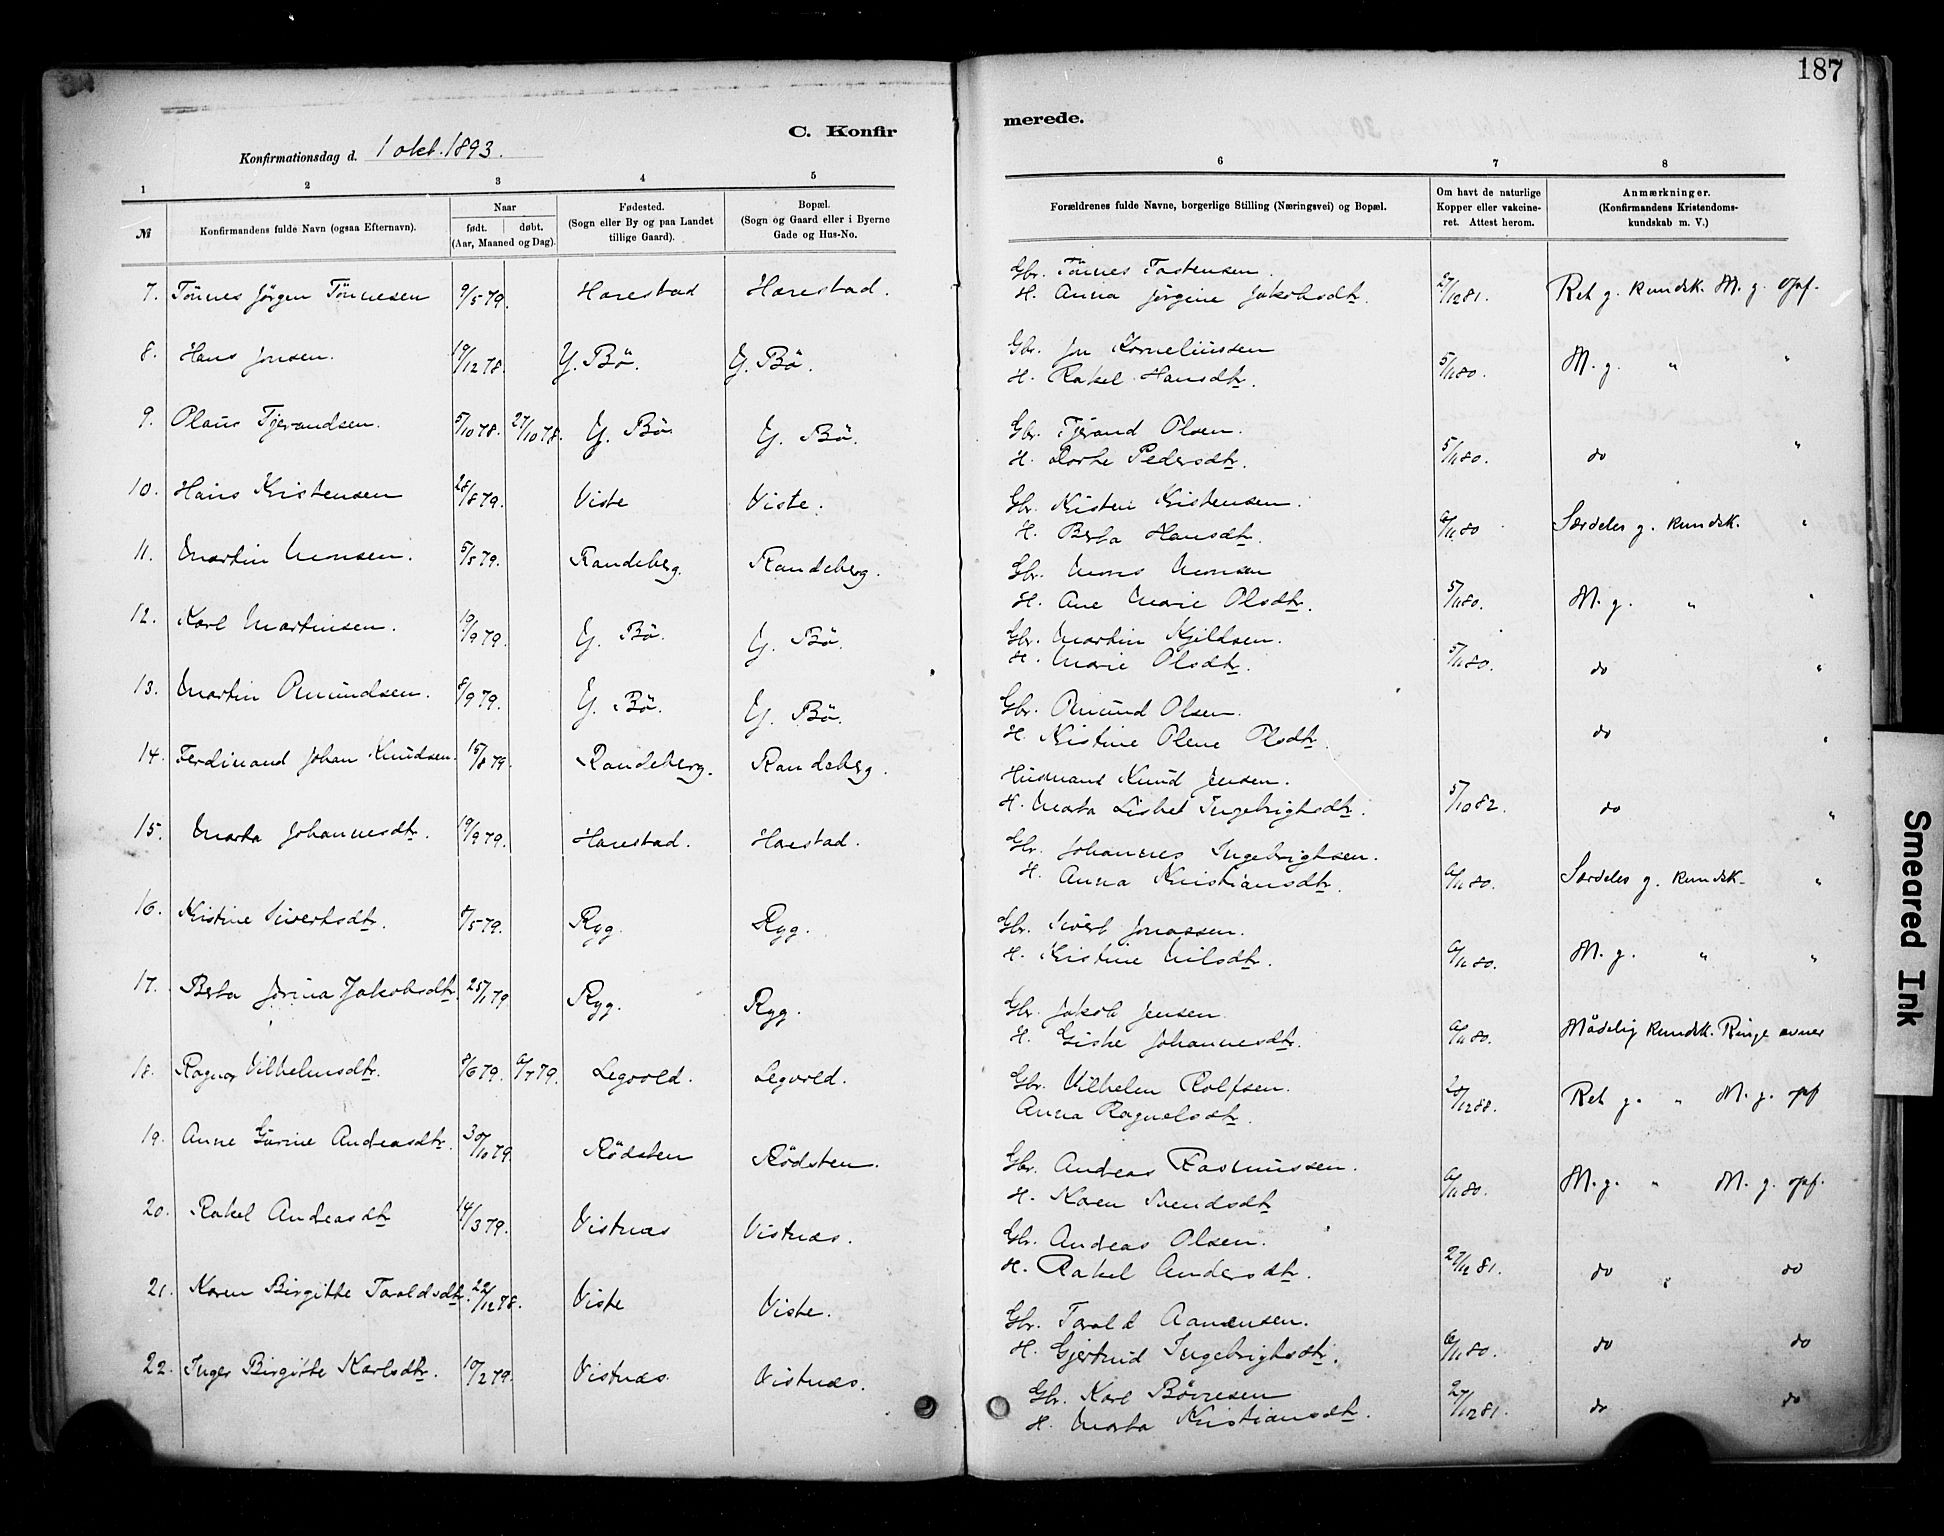 187
C. Konfir merede.
Konfirmationsdag d. 1 okt. 1893.
1 2 3 4 5 6 7 8
№ Konfirmandens fulde Navn (ogsaa Efternavn).
Naar født. døbt. (Aar, Maaned og Dag).
Fødested. (Sogn eller By og paa Landet tillige Gaard).
Bopæl. (Sogn og Gaard eller i Byerne Gade og Hus-No.
Forældrenes fulde Navne, borgerlige Stilling (Næringsvei) og Bopæl.
Om havt de naturlige Kopper eller vakcineret. Attest herom.
Anmærkninger. (Konfirmandens Kristendomskundskab m. V.)
7. Tönnes Jörgen Tönnesen 9/5 79. Harestad Harestad. Gbr. Tönnes Tostensen. 27/12 81. Ret g. kundsk. M. g. opf.
H. Anna Jörgine Jakobsdtr.
8. Hans Jonsen. 19/12 78. Y. Bö. Y. Bö. Gbr. Jon Korneliussen 5/11 80. M. g. " "
H. Rakel Hansdtr.
9. Olaus Tjerandsen. 5/10 78. 27/10 78. Y. Bö. Y. Bö. Gbr. Tjerand Olsen. 5/11 80. do "
H. Dorte Pedersdtr.
10. Hans Kristensen 28/8 79. Viste Viste. Gbr. Kristen Kristensen. 6/11 80 Særdeles g. kundsk. "
H. Berta Hansdtr.
11. Martin Monsen. 5/8 79. Randeberg. Randeberg. Gbr. Mons Monsen 5/11 80. M. g. " "
H. Ane Marie Olsdtr.
12. Karl Martinsen. 19/9 79. Y. Bö. Y. Bö. Gbr. Martin Kjeldsen. 5/11 80. do "
H. Marie Olsdtr.
13. Martin Amundsen. 8/9 79. Y. Bö. Y. Bö. Gbr. Amund Olsen. do "
H. Kistine Olene Olsdtr.
14. Ferdinand Johan Knudsen. 15/8 79. Randeberg. Randeberg. Husmand Knud Jensen. 5/10 82. do "
H. Marta Lisbet Ingebrigtsdtr.
15. Marta Johannesdtr. 19/9 79. Harestad. Harestad. Gbr. Johannes Ingebrigtsen. 6/11 80. Særdeles g. kundsk. "
H. Anna Kristiansdtr.
16. Kistine Sivertsdtr. /5 79. Ryg. Ryg. Gbr. Sivert Jonassen. 6/11 80. M. g. " "
H. Kistine Nilsdtr.
17. Berta Jorina Jakobsdtr. 25/1 79 Ryg. Ryg. Gbr. Jakob Jensen. 6/11 80. Mådelig kundsk. Ringe evner
H. Giske Johannesdtr.
18. Ragna Vilhelmsdtr. 8/6 79. 6/7 79. Legvold. Legvold. Gbr. Vilhelm Rolfsen. 20/12 88. Ret g. " M. g. opf
Anna Ragnelsdtr.
19. Anne Gurine Andreasdtr. 30/10 79 Rödsten Rödsten. Gbr. Andreas Rasmussen. 6/11 80. M. g. " M. g. opf.
H. Karen Svendsdtr
20. Rakel Andreasdtr 14/3 79. Vistnæs Vistnæs. Gbr. Andreas Olsen. 27/12 81. do " do
H. Rakel Andersdtr.
21. Karen Birgitte Taraldsdtr. 22/12 78. Viste Viste. Gbr. Tarald Aanensen. 6/11 80. do do
H. Gjertrud Ingebrigtsdtr.
22. Inger Birgitte Karlsdtr. 10/2 79. Vistnæs. Vistnæs. Gbr. Karl Börresen 27/12 81. do do
H. Marta Kristiansdtr.
Smeared Ink